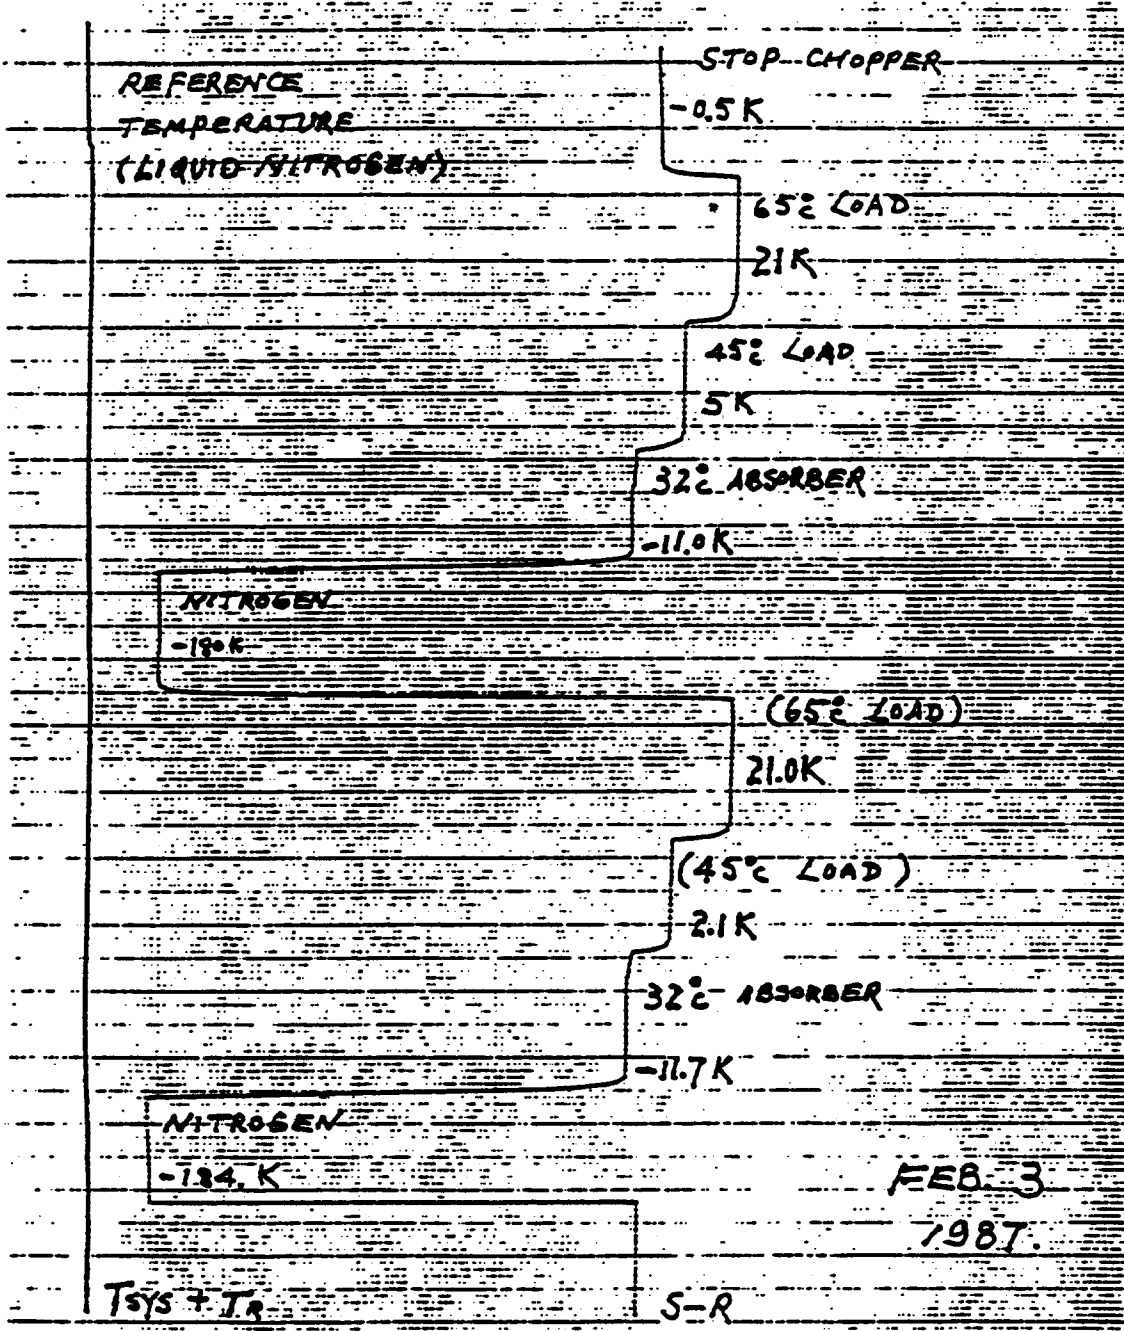 REFERENCE
TEMPERATURE
(LIQUID NITROGEN)
STOP CHOPPER
-0.5 K
65°C LOAD
21K
45°C LOAD
5 K
32°C ABSORBER
-11.0K
NITROGEN
-180K
(65°C LOAD)
21.0K
(45°C LOAD)
2.1 K
32°C ABSORBER
-11.7 K
NITROGEN
-184. K
FEB. 3
1987.
TSYS + TR
S-R